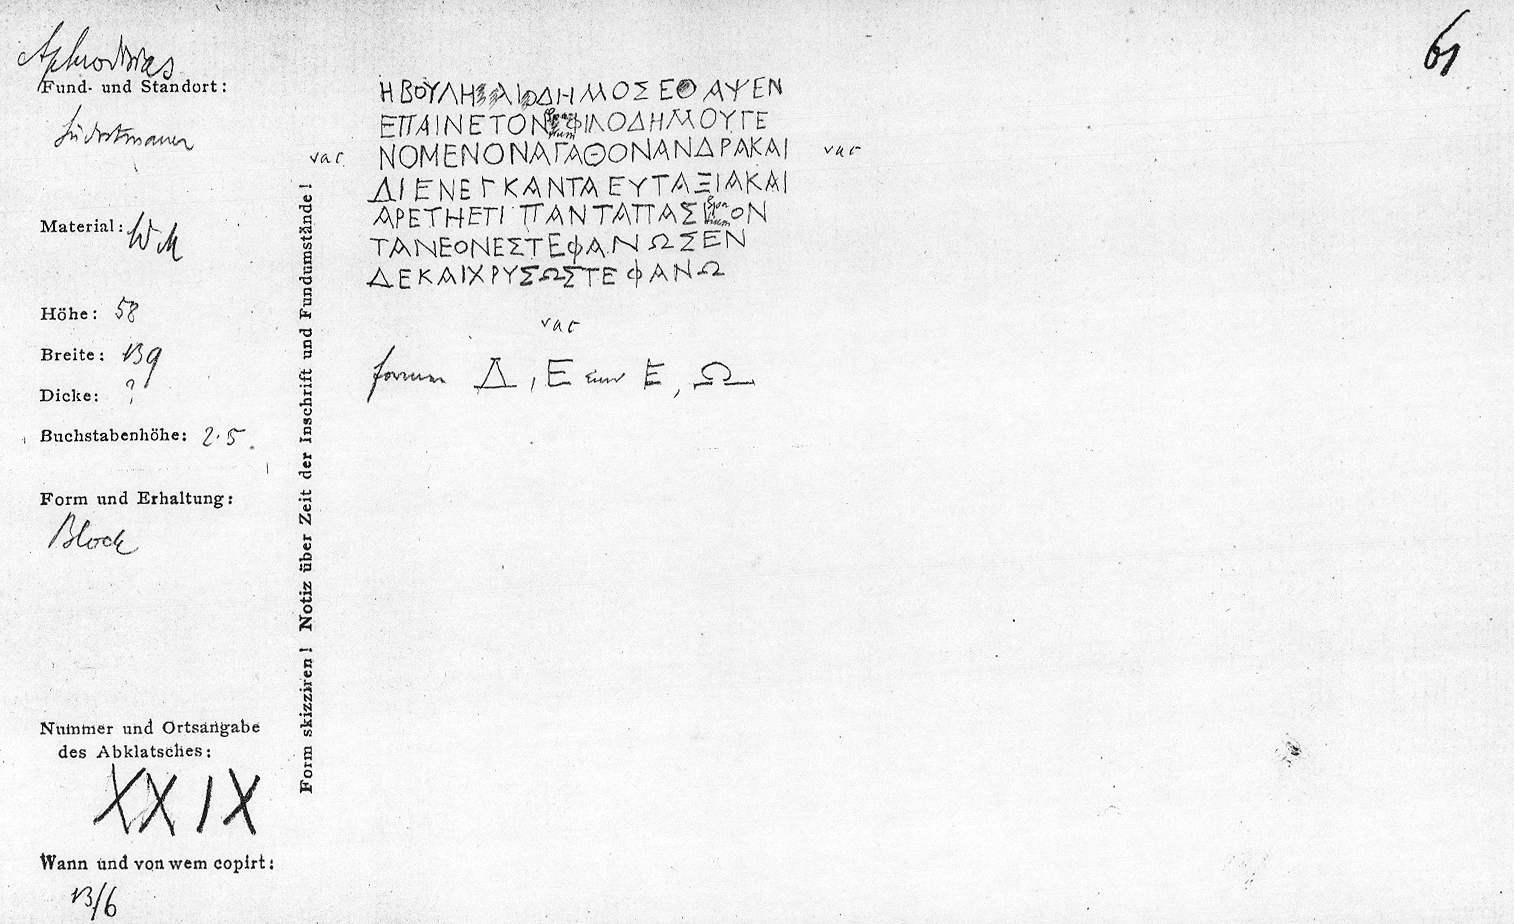 Aphrodisias
61
Fund- und Standort:
Südostmauer
Material: W M
Höhe: 58
Breite: 139
Dicke: ?
Buchstabenhöhe: 2.5
Form und Erhaltung:
Block
Nummer und Ortsangabe
des Abklatsches:
XXIX
Wann und von wem copirt:
13/6
Form skizziren! Notiz über Zeit der Inschrift und Fundumstände!
ΗΒΟΥΛΗΚΑΙΟΔΗΜΟΣΕΘΑΨΕΝ
ΕΠΑΙΝΕΤΟΝ ΦΙΛΟΔΗΜΟΥΓΕ
vac ΝΟΜΕΝΟΝΑΓΑΘΟΝΑΝΔΡΑΚΑΙ vac
ΔΙΕΝΕΓΚΑΝΤΑΕΥΤΑΞΙΑΚΑΙ
ΑΡΕΤΗΕΤΙΠΑΝΤΑΠΑΣΙ ΟΝ
ΤΑΝΕΟΝΕΣΤΕΦΑΝΩΣΕΝ
ΔΕΚΑΙΧΡΥΣΩΣΤΕΦΑΝΩ
vac
Δ, Ε Ε, Ω